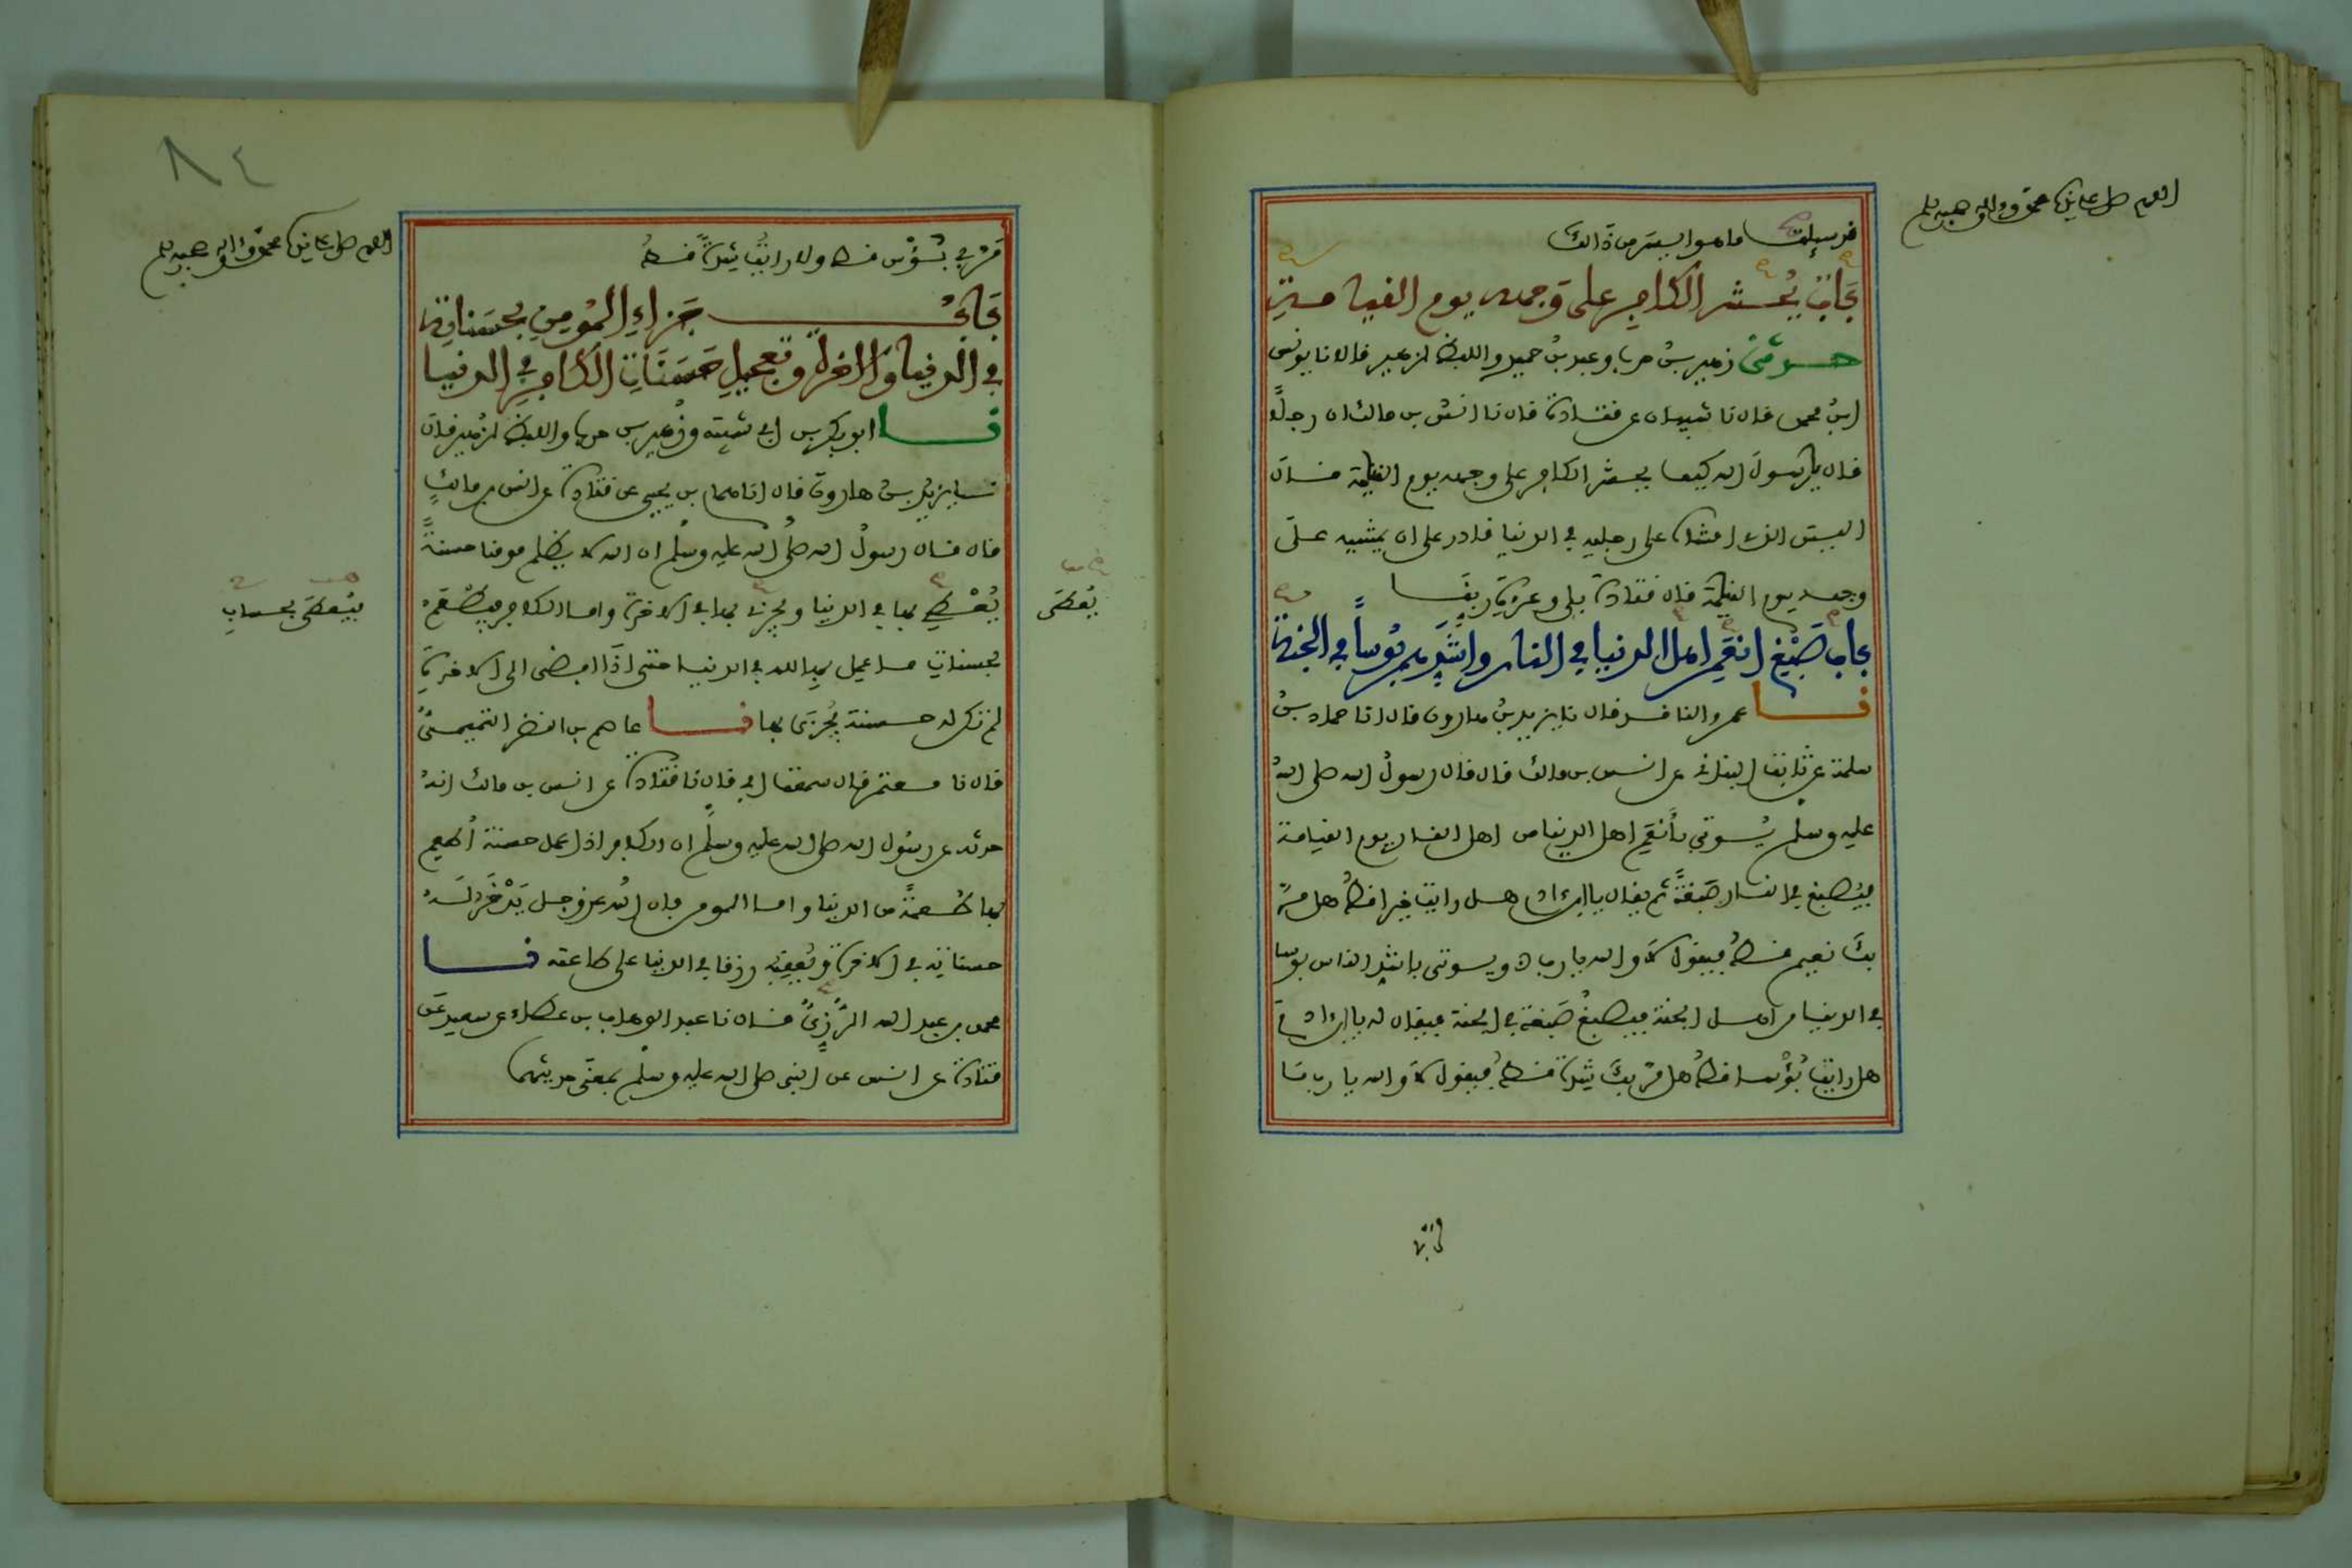 اللهم صل على سيدنا محمد وءاله وصحبه وسلم
قد سيلت ما هو ايسر من ذالك
باب يحشر الكافر على وجهه يوم القيامة
حدثني زهير بن حرب وعبد بن حميد واللفظ لزهير قالا نا يونس
ابن محمد قال نا شيبان عن قتادة قال نا انس بن مالك ان رجلا
قال يا رسول الله كيف يحشر الكافر على وجهه يوم القيمة قال
اليس الذي امشاه على رجليه في الدنيا قادر على ان يمشيه على
وجهه يوم القيمة قال قتادة بلى وعزة ربنا
باب صبغ انعم اهل الدنيا في النار واشدهم بوسا في الجنة
نا عمرو الناقد قال نا يزيد بن هارون قال انا حماد بن
سلمة عن ثابت البناني عن انس بن مالك قال قال رسول الله صلى الله
عليه وسلم يوتى بأنعم اهل الدنيا من اهل النار يوم القيامة
فيصبغ في النار صبغة ثم يقال يا ابن ءادم هل رايت خيرا قط هل مر
بك نعيم قط فيقول لا والله يا رب ويوتى باشد الناس بوسا
في الدنيا من اهل الجنة فيصبغ صبغة في الجنة فيقال له يا ابن ءادم
هل رايت بؤسا قط هل مر بك شدة قط فيقول لا والله يا رب ما
٨٤
اللهم صل على سيدنا محمد وءاله وصحبه وسلم
مر بي بؤس قط ولا رايت شدة قط
باب جزاء المومن بحسناته
في الدنيا والاخرة وتعجيل حسنات الكافر في الدنيا
نا ابو بكر بن ابي شيبة وزهير بن حرب واللفظ لزهير قالا
نا يزيد بن هارون قال انا همام بن يحيى عن قتادة عن انس بن مالك
قال قال رسول الله صلى الله عليه وسلم ان الله لا يظلم مومنا حسنة
يعطي بها في الدنيا ويجزى بها في الاخرة واما الكافر فيطعم
يعطى
فيعطى بحساب
بحسنات ما عمل بها لله في الدنيا حتى اذا افضى الى الاخرة
لم تكن له حسنة يجزى بها نا عاصم بن النضر التيمي
قال نا معتمر قال سمعت ابي قال نا قتادة عن انس بن مالك انه
حدثه عن رسول الله صلى الله عليه وسلم ان الكافر اذا عمل حسنة أطعم
بها طعمة من الدنيا واما المومن فان الله عز وجل يدخر له
حسناته في الاخرة ويعقبه رزقا في الدنيا على طاعته نا
محمد بن عبد الله الرزي قال نا عبد الوهاب بن عطاء عن سعيد عن
قتادة عن انس عن النبي صلى الله عليه وسلم بمعنى حديثهما